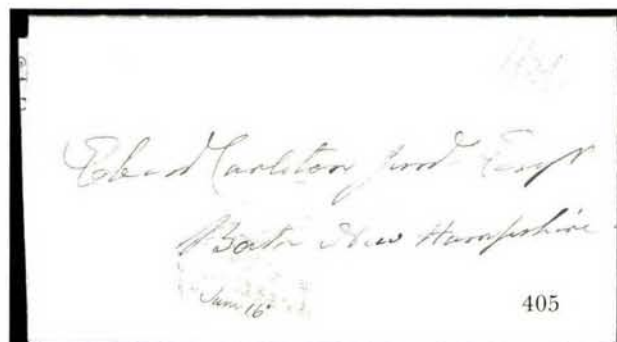 Carleton Junr Esqr
Bath New Hampshire
June 16
405